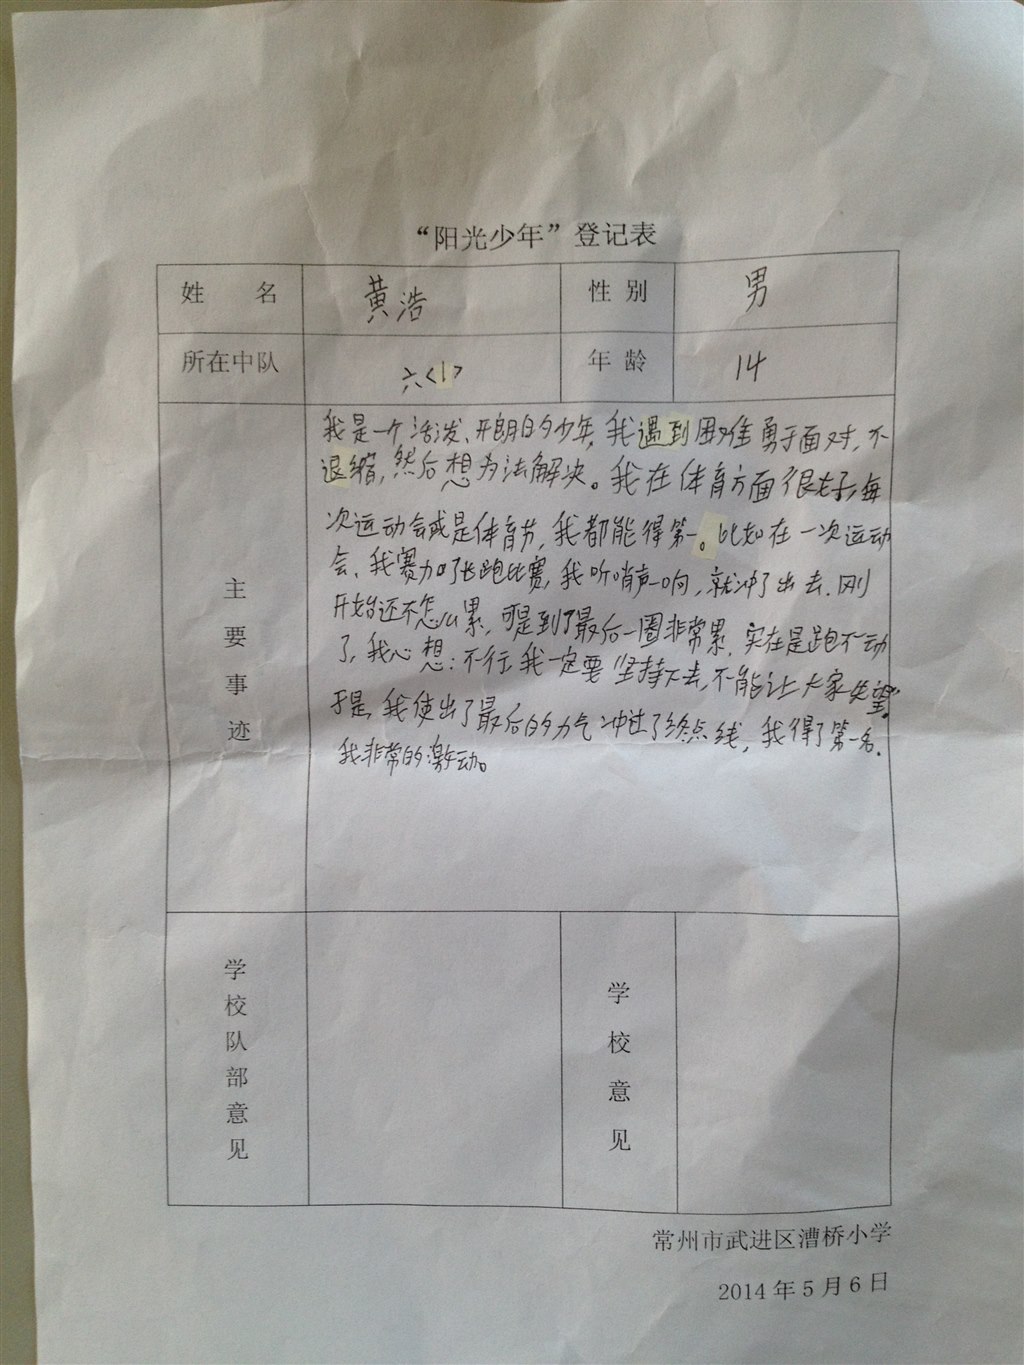 “阳光少年”登记表
姓 名 黄浩 性 别 男
所在中队 六<1> 年 龄 14
主要事迹
我是一个活泼、开朗的少年,我遇到困难勇于面对,不
退缩,然后想办法解决。我在体育方面很好,每
次运动会或是体育节,我都能得第一。比如在一次运动
会,我赛加了长跑比赛,我听哨声一响,就冲了出去.刚
开始还不怎么累,可是到了最后一圈非常累,实在是跑不动
了,我心想:不行,我一定要坚持下去,不能让大家失望。
于是,我使出了最后的力气冲过了终点线,我得了第一名.
我非常的激动。
学校队部意见
学校意见
常州市武进区漕桥小学
2014年5月6日